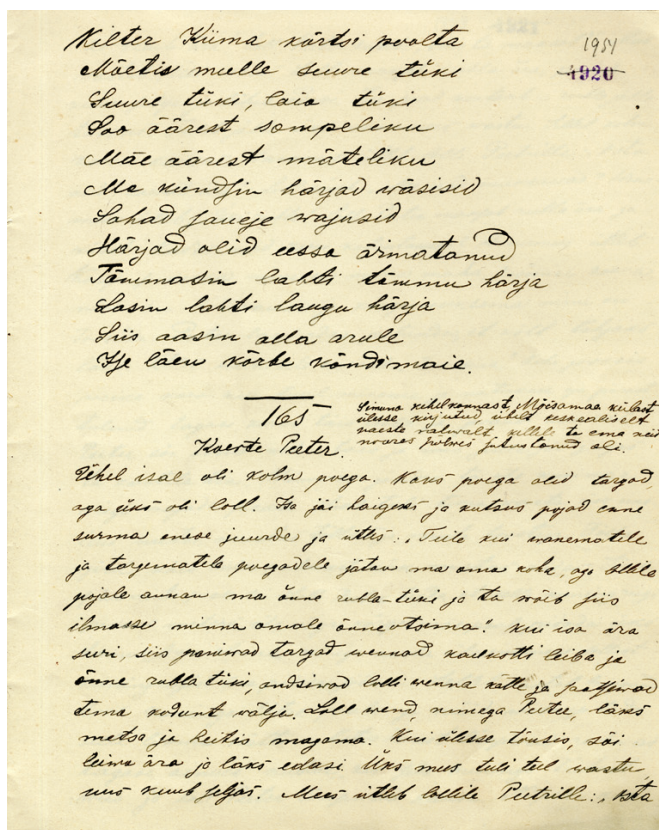 Kilter Kiima kõrtsi poolta
1951
1920
Mõetis mulle suure tüki
Suure tüki, laia tüki
Soo äärest sompeliku
Mäe äärest mäteliku
Ma kündsin härjad wäsisid
Sahad saueje wajusid
Härjad olid eessa ärmatanud
Tõmmasin lahti tõmmu härja
Lasin lahti laugu härja
Siis aasin alla arule
Ise läen kõrbe kõndimaie.
165
Simuna kihelkonnast, Mõisamaa külast
ülesse kirjutud ühelt keskealiselt
naeste rahwalt, kellele ta ema neid
noores põlwes jutustanud oli.
Koerte Peeter.
Ühel isal oli kolm poega. Kaks poega olid targad,
aga üks oli loll. Isa jäi haigeks ja kutsus pojad enne
surma enese juurde ja ütles: „Teile kui wanematele
ja targematele poegadele jätan ma oma koha, aga lollile
pojale annan ma õnne rubla-tüki ja ta wõib siis
ilmasse minna omale õnne otsima". Kui isa ära
suri, siis paniwad targad wennad kaelkotti leiba ja
õnne rubla tüki, andsiwad lolli wenna kätte ja saatsiwad
tema kodunt wälja. Loll wend, nimega Peeter, läks
metsa ja heitis magama. Kui ülesse tõusis, sõi
leiwa ära ja läks edasi. Üks mees tuli tal wastu,
uus kuub seljas. Mees ütleb lollile Peetrille: „Osta